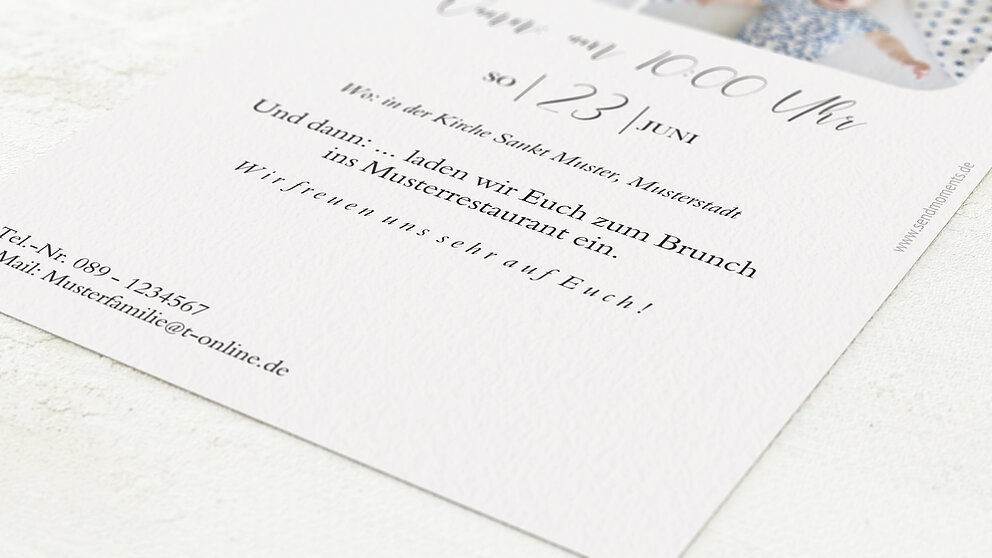 10:00 Uhr
SO | 23 | JUNI
Wo: in der Kirche Sankt Muster, Musterstadt
Und dann: ... laden wir Euch zum Brunch
ins Musterrestaurant ein.
Wir freuen uns sehr auf Euch!
Tel.-Nr. 089 - 1234567
Mail: Musterfamilie@t-online.de
www.sendmoments.de